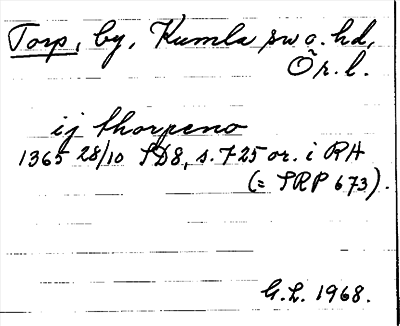 Torp, by, Kumla sw o. hd,
Ör. l.
ij thorpeno
1365 28/10 SD8, s. 725 or. i RA
(= SRP 673).
G. L. 1968.